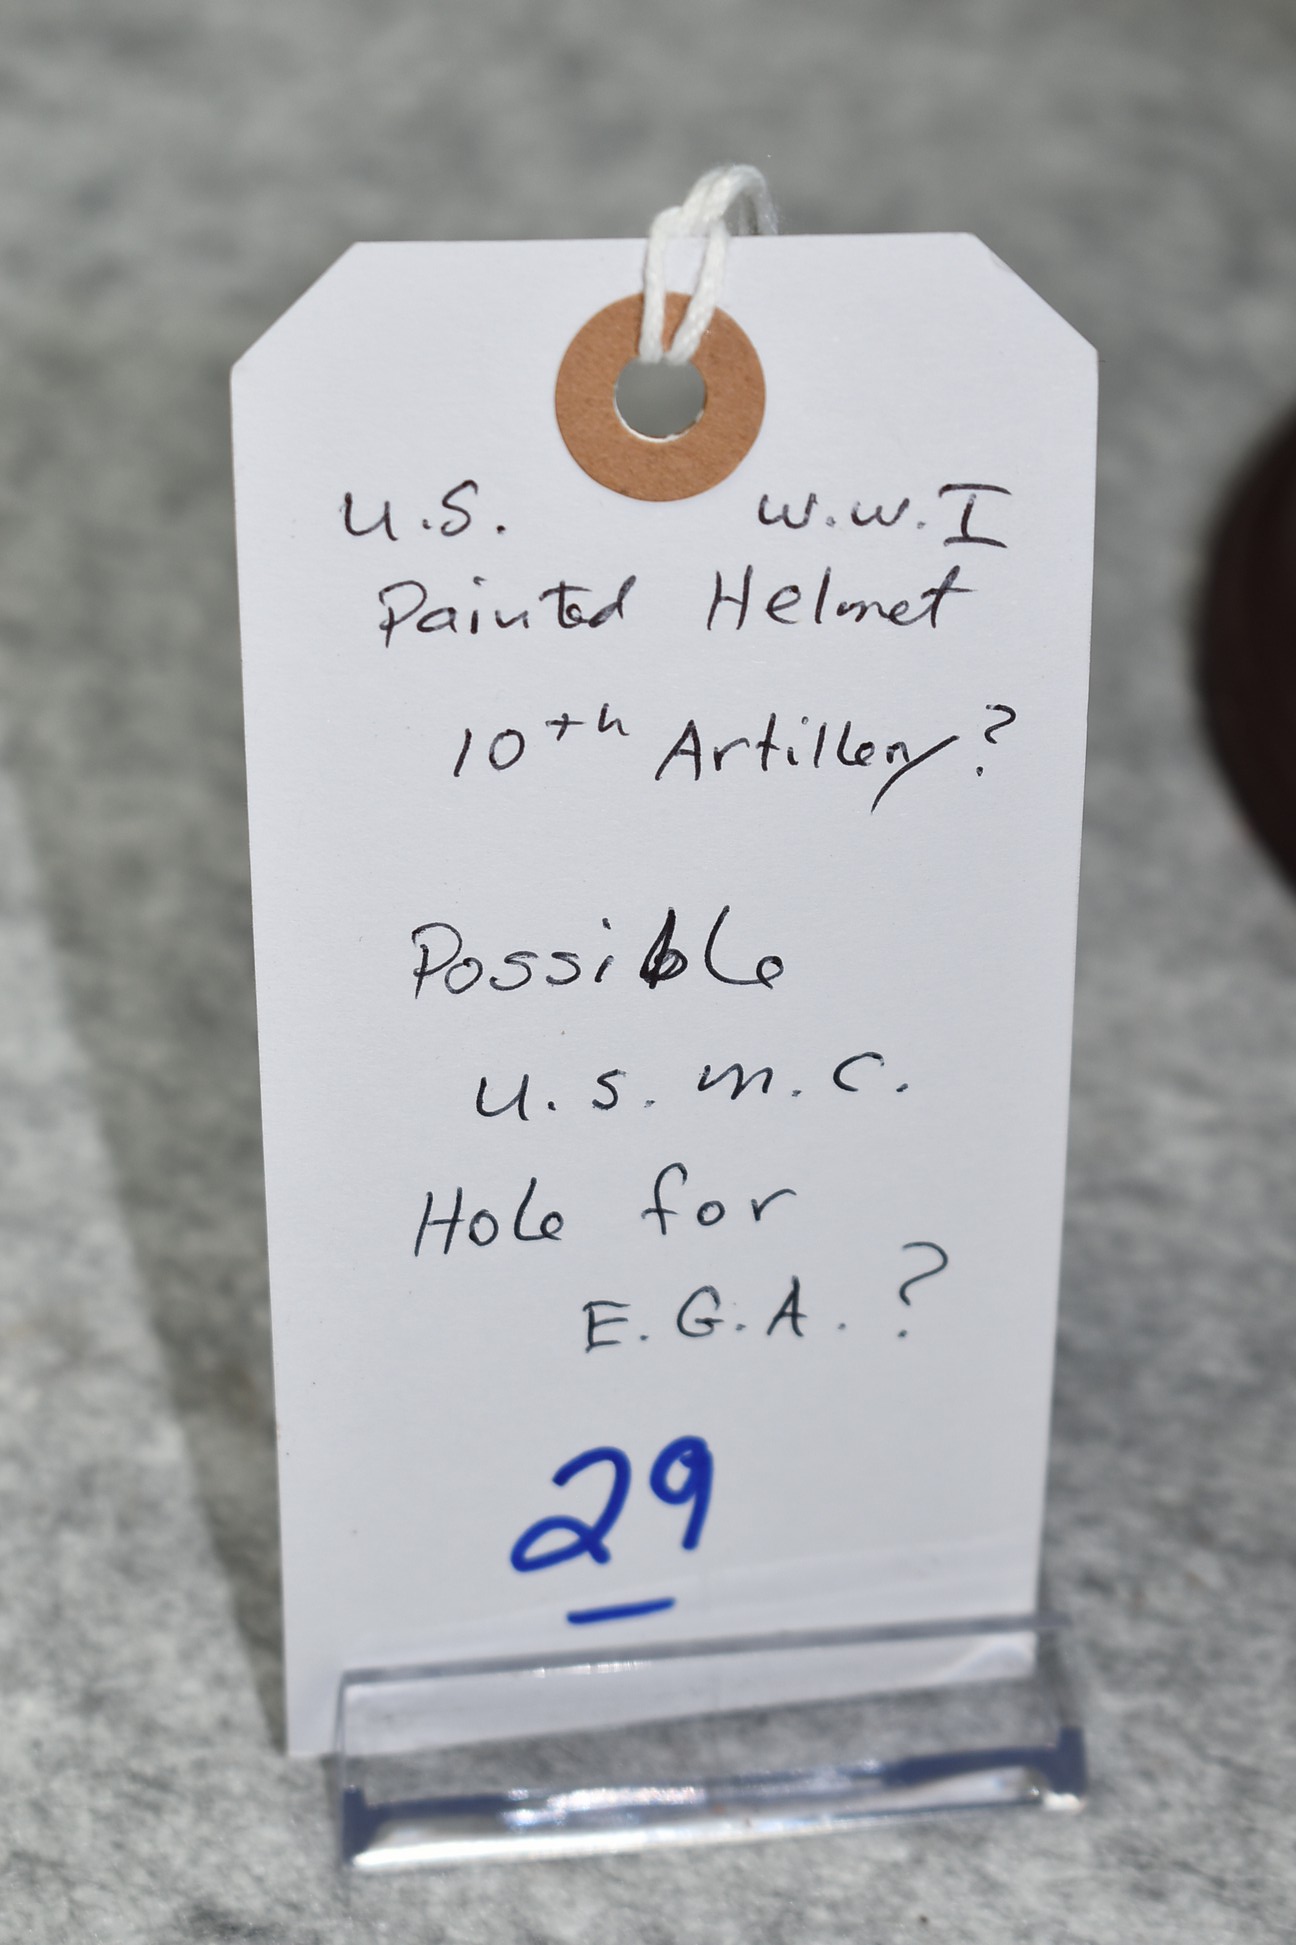 U.S. W.W.I
Painted Helmet
10th Artillery?
Possible
U.S.M.C.
Hole for
E.G.A.?
29